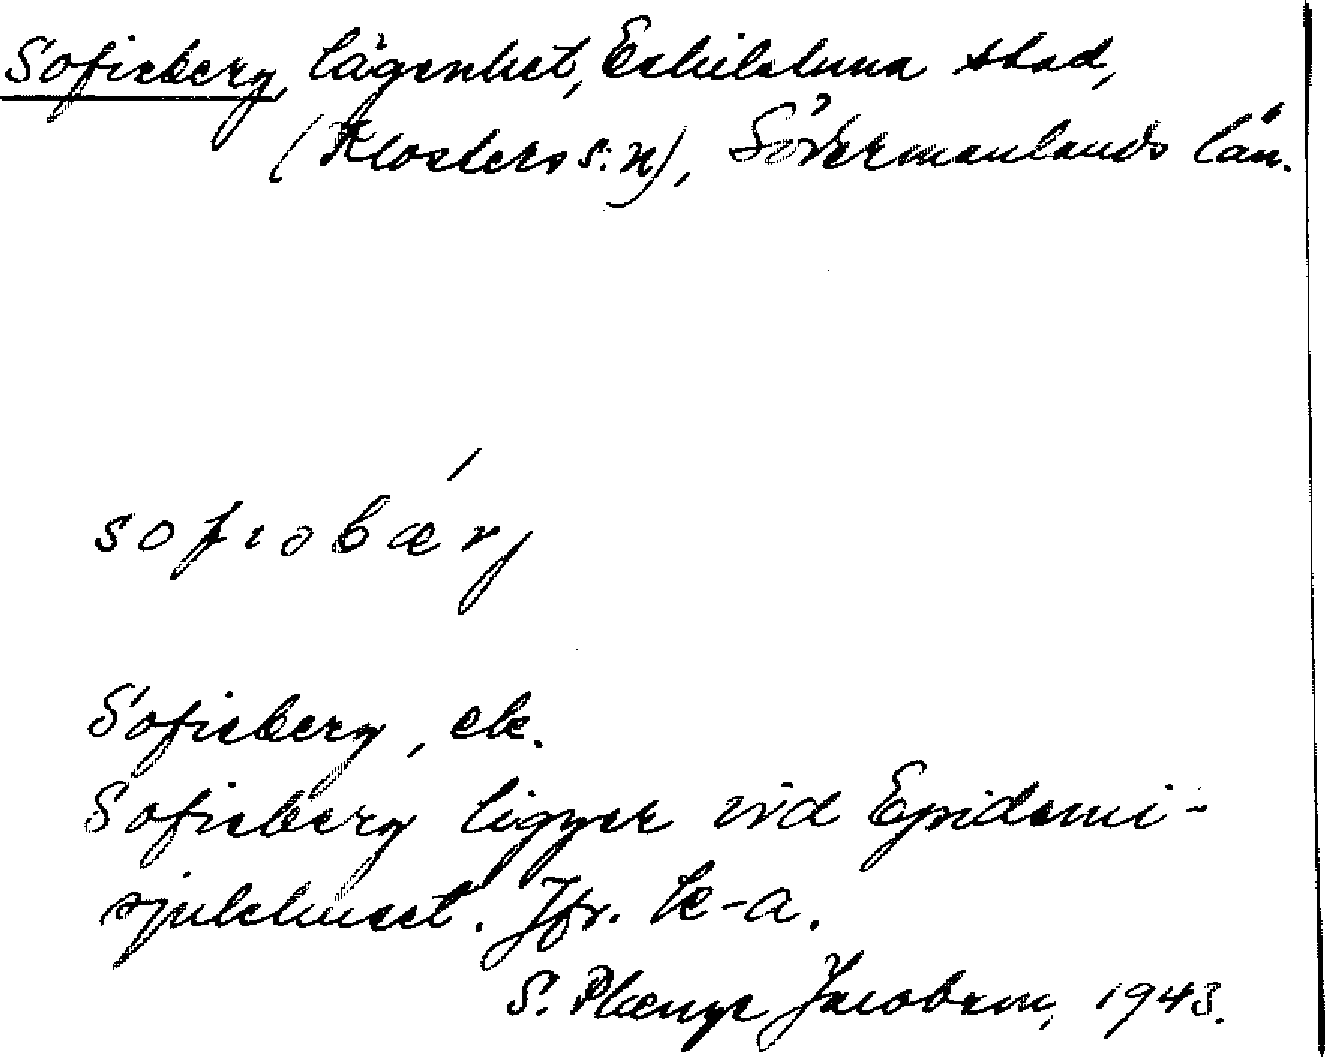 Sofieberg, lägenhet, Eskilstuna stad,
(Klosters s:n), Södermanlands län.
sofiəbæŕj
Sofieberg, ek.
Sofieberg ligger vid Epidemi-
sjukhuset. Jfr. k-a.
S. Plænge Jacobson, 1943.